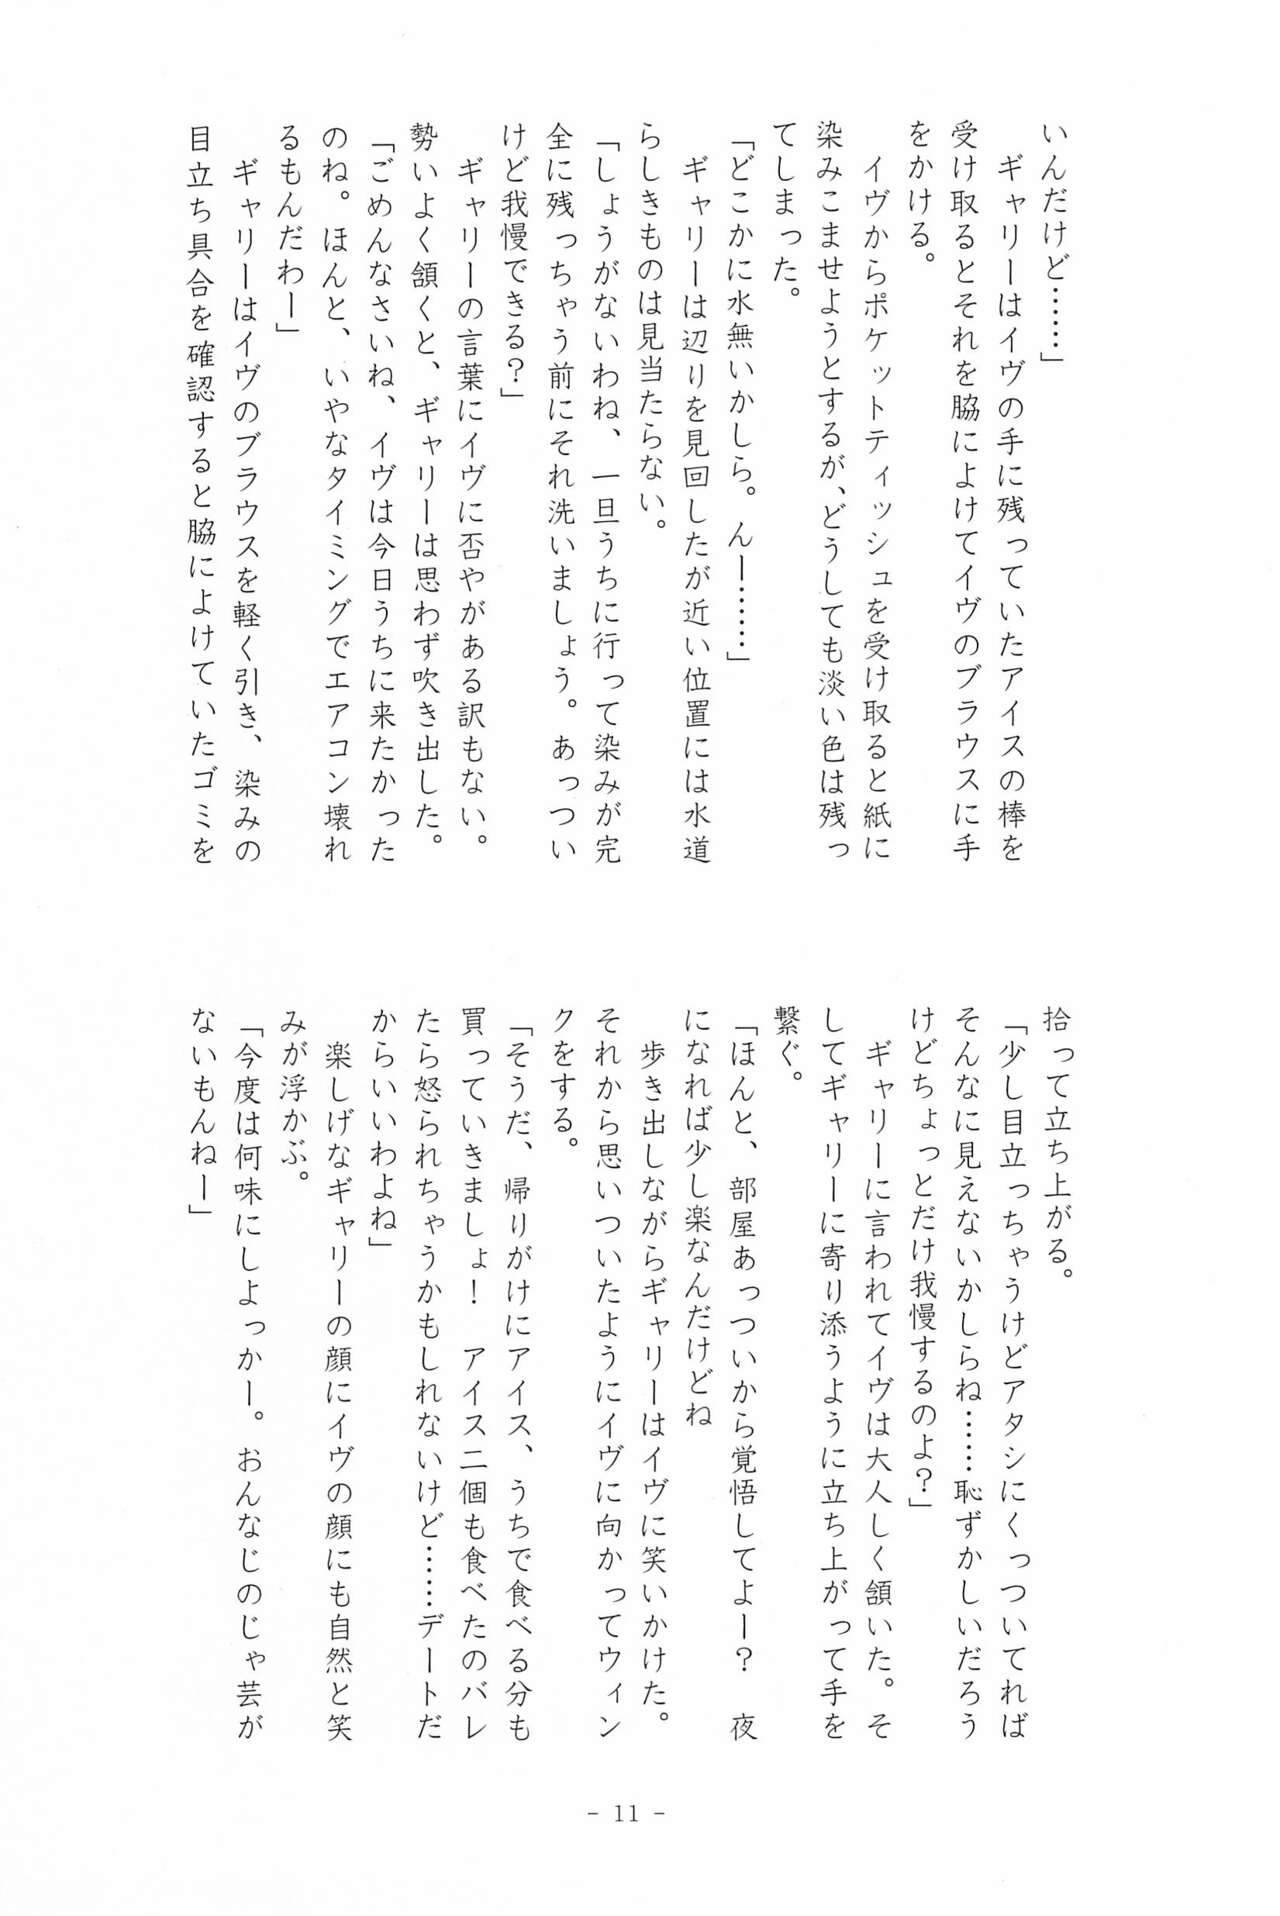 いんだけど……」
　ギャリーはイヴの手に残っていたアイスの棒を
受け取るとそれを脇によけてイヴのブラウスに手
をかける。
　イヴからポケットティッシュを受け取ると紙に
染みこませようとするが、どうしても淡い色は残っ
てしまった。
「どこかに水無いかしら。んー……」
　ギャリーは辺りを見回したが近い位置には水道
らしきものは見当たらない。
「しょうがないわね、一旦うちに行って染みが完
全に残っちゃう前にそれ洗いましょう。あっつい
けど我慢できる？」
　ギャリーの言葉にイヴに否やがある訳もない。
勢いよく頷くと、ギャリーは思わず吹き出した。
「ごめんなさいね、イヴは今日うちに来たかった
のね。ほんと、いやなタイミングでエアコン壊れ
るもんだわー」
　ギャリーはイヴのブラウスを軽く引き、染みの
目立ち具合を確認すると脇によけていたゴミを
拾って立ち上がる。
「少し目立っちゃうけどアタシにくっついてれば
そんなに見えないかしらね……恥ずかしいだろう
けどちょっとだけ我慢するのよ？」
　ギャリーに言われてイヴは大人しく頷いた。そ
してギャリーに寄り添うように立ち上がって手を
繋ぐ。
「ほんと、部屋あっついから覚悟してよー？　夜
になれば少し楽なんだけどね
　歩き出しながらギャリーはイヴに笑いかけた。
それから思いついたようにイヴに向かってウィン
クをする。
「そうだ、帰りがけにアイス、うちで食べる分も
買っていきましょ！　アイス二個も食べたのバレ
たら怒られちゃうかもしれないけど……デートだ
からいいわよね」
　楽しげなギャリーの顔にイヴの顔にも自然と笑
みが浮かぶ。
「今度は何味にしよっかー。おんなじのじゃ芸が
ないもんねー」
- 11 -